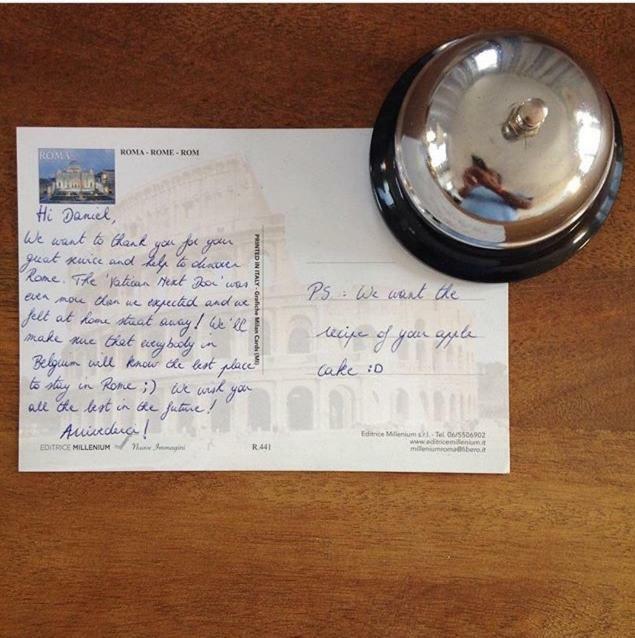 ROMA
ROMA - ROME - ROM
Hi Daniel,
We want to thank you for your
great service and help to discover
Rome. The 'Vatican Next Door' was
even more than we expected and we
felt at home straat away! We'll
make sure that everybody in
Belgium will know the best place
to stay in Rome ;) We wish you
all the best in the future!
Arrivederci!
EDITRICE MILLENIUM
Nuove Immagini
R.441
PRINTED IN ITALY - Grafiche Milan Cards (MI)
PS : We want the
recipe of your apple
cake :D
Editrice Millenium s.r.l. - Tel. 06/5506902
www.editricemillenium.it
milleniumroma@libero.it